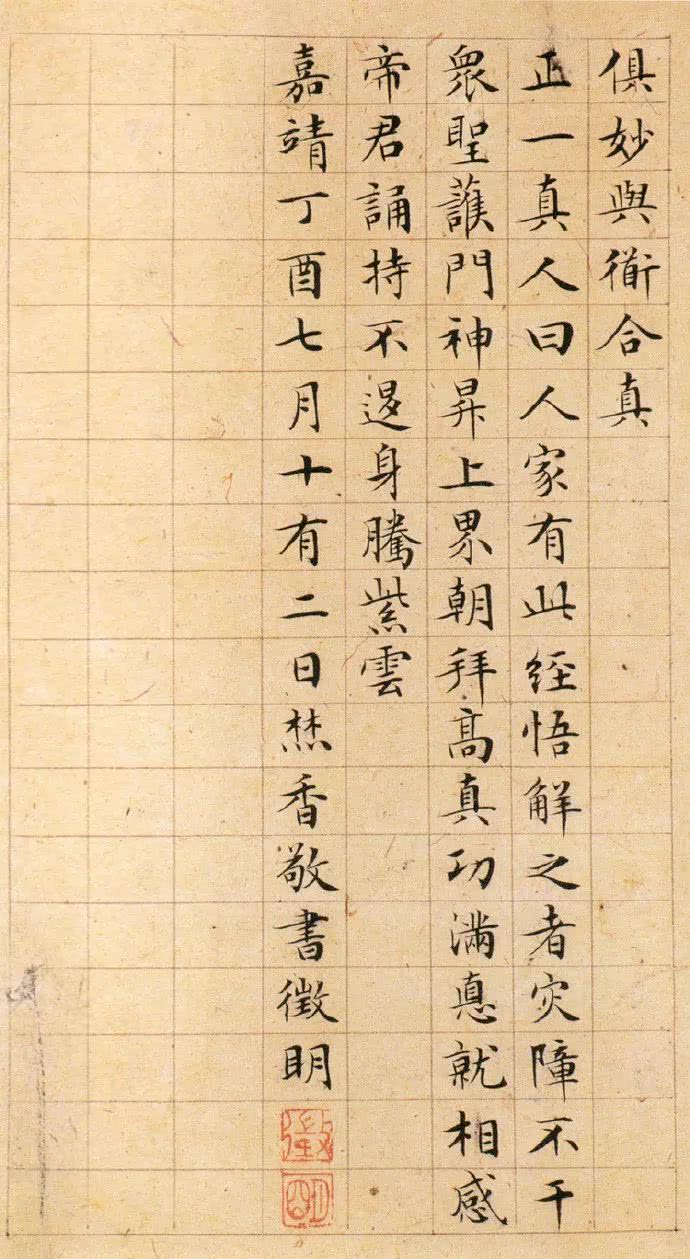 俱妙與衜合真
正一真人曰人家有此經悟解之者灾障不干
衆聖護門神昇上界朝拜高真功滿悳就相感
帝君誦持不退身騰紫雲
嘉靖丁酉七月十有二日焚香敬書徵明
徵
明